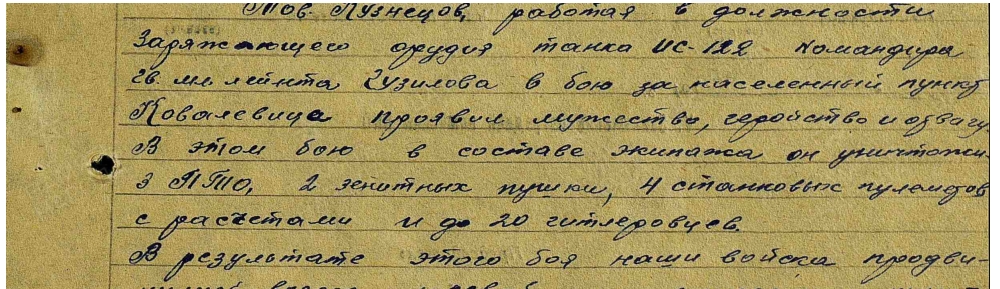 Тов. Кузнецов, работая в должности
Заряжающего орудия танка ИС-122 Командира
гв мл лейнта Гузилова в бою за населенный пункт
Ковалевица проявил мужество, геройство и отвагу.
В этом бою в составе экипажа он уничтожи
3 ПТО, 2 зенитных пушки, 4 станковых пулеметов
с расчетами и до 20 гитлеровцев.
В результате этого боя наши войска продви-